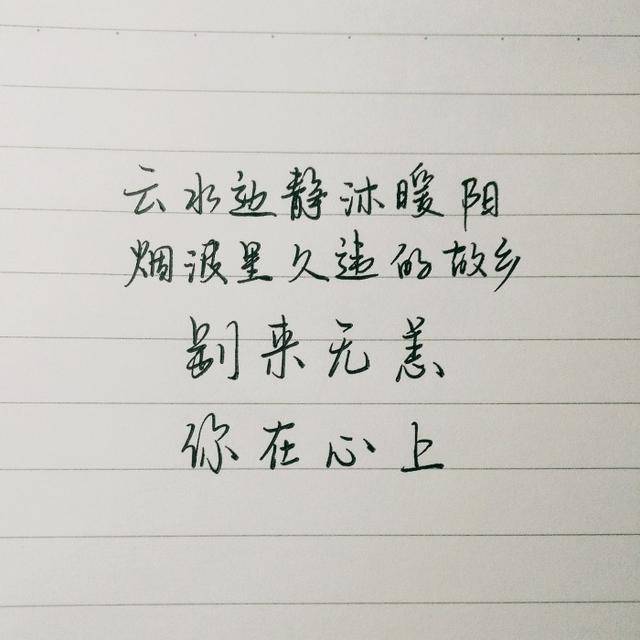 云水边静沐暖阳
烟波里久违的故乡
别来无恙
你在心上